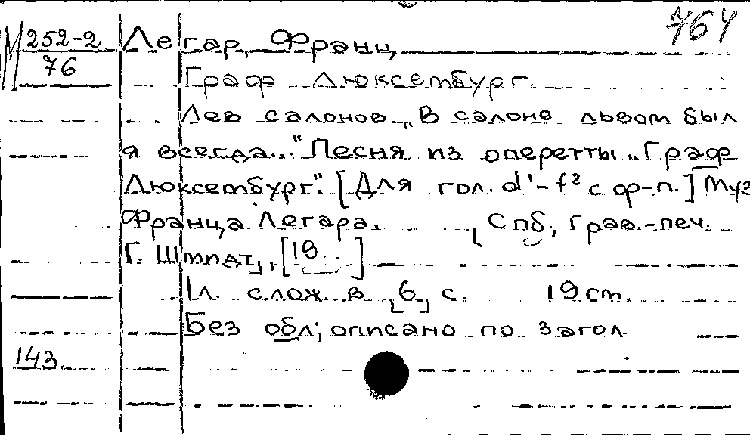 764
М 252-2
76
Легар, Франц
Граф Люксембург.
Лев салонов „В салоне львом был
я всегда..." Песня из оперетты „Граф
Люксембург". [Для гол. d¹-f² с ф-п.] Муз
Франца Легара. [Спб, Грав.-печ.
Г. Шмидт], [19...]
1 л. слож. в [6] с. 19 cm.
Без обл; описано по загол
143